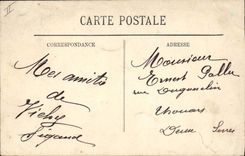 CARTE POSTALE
CORRESPONDANCE
ADRESSE
Mes amitiés
de
Vichy
Monsieur
Ernest Pallu
rue Duguesclin
Thouars
Deux Sèvres